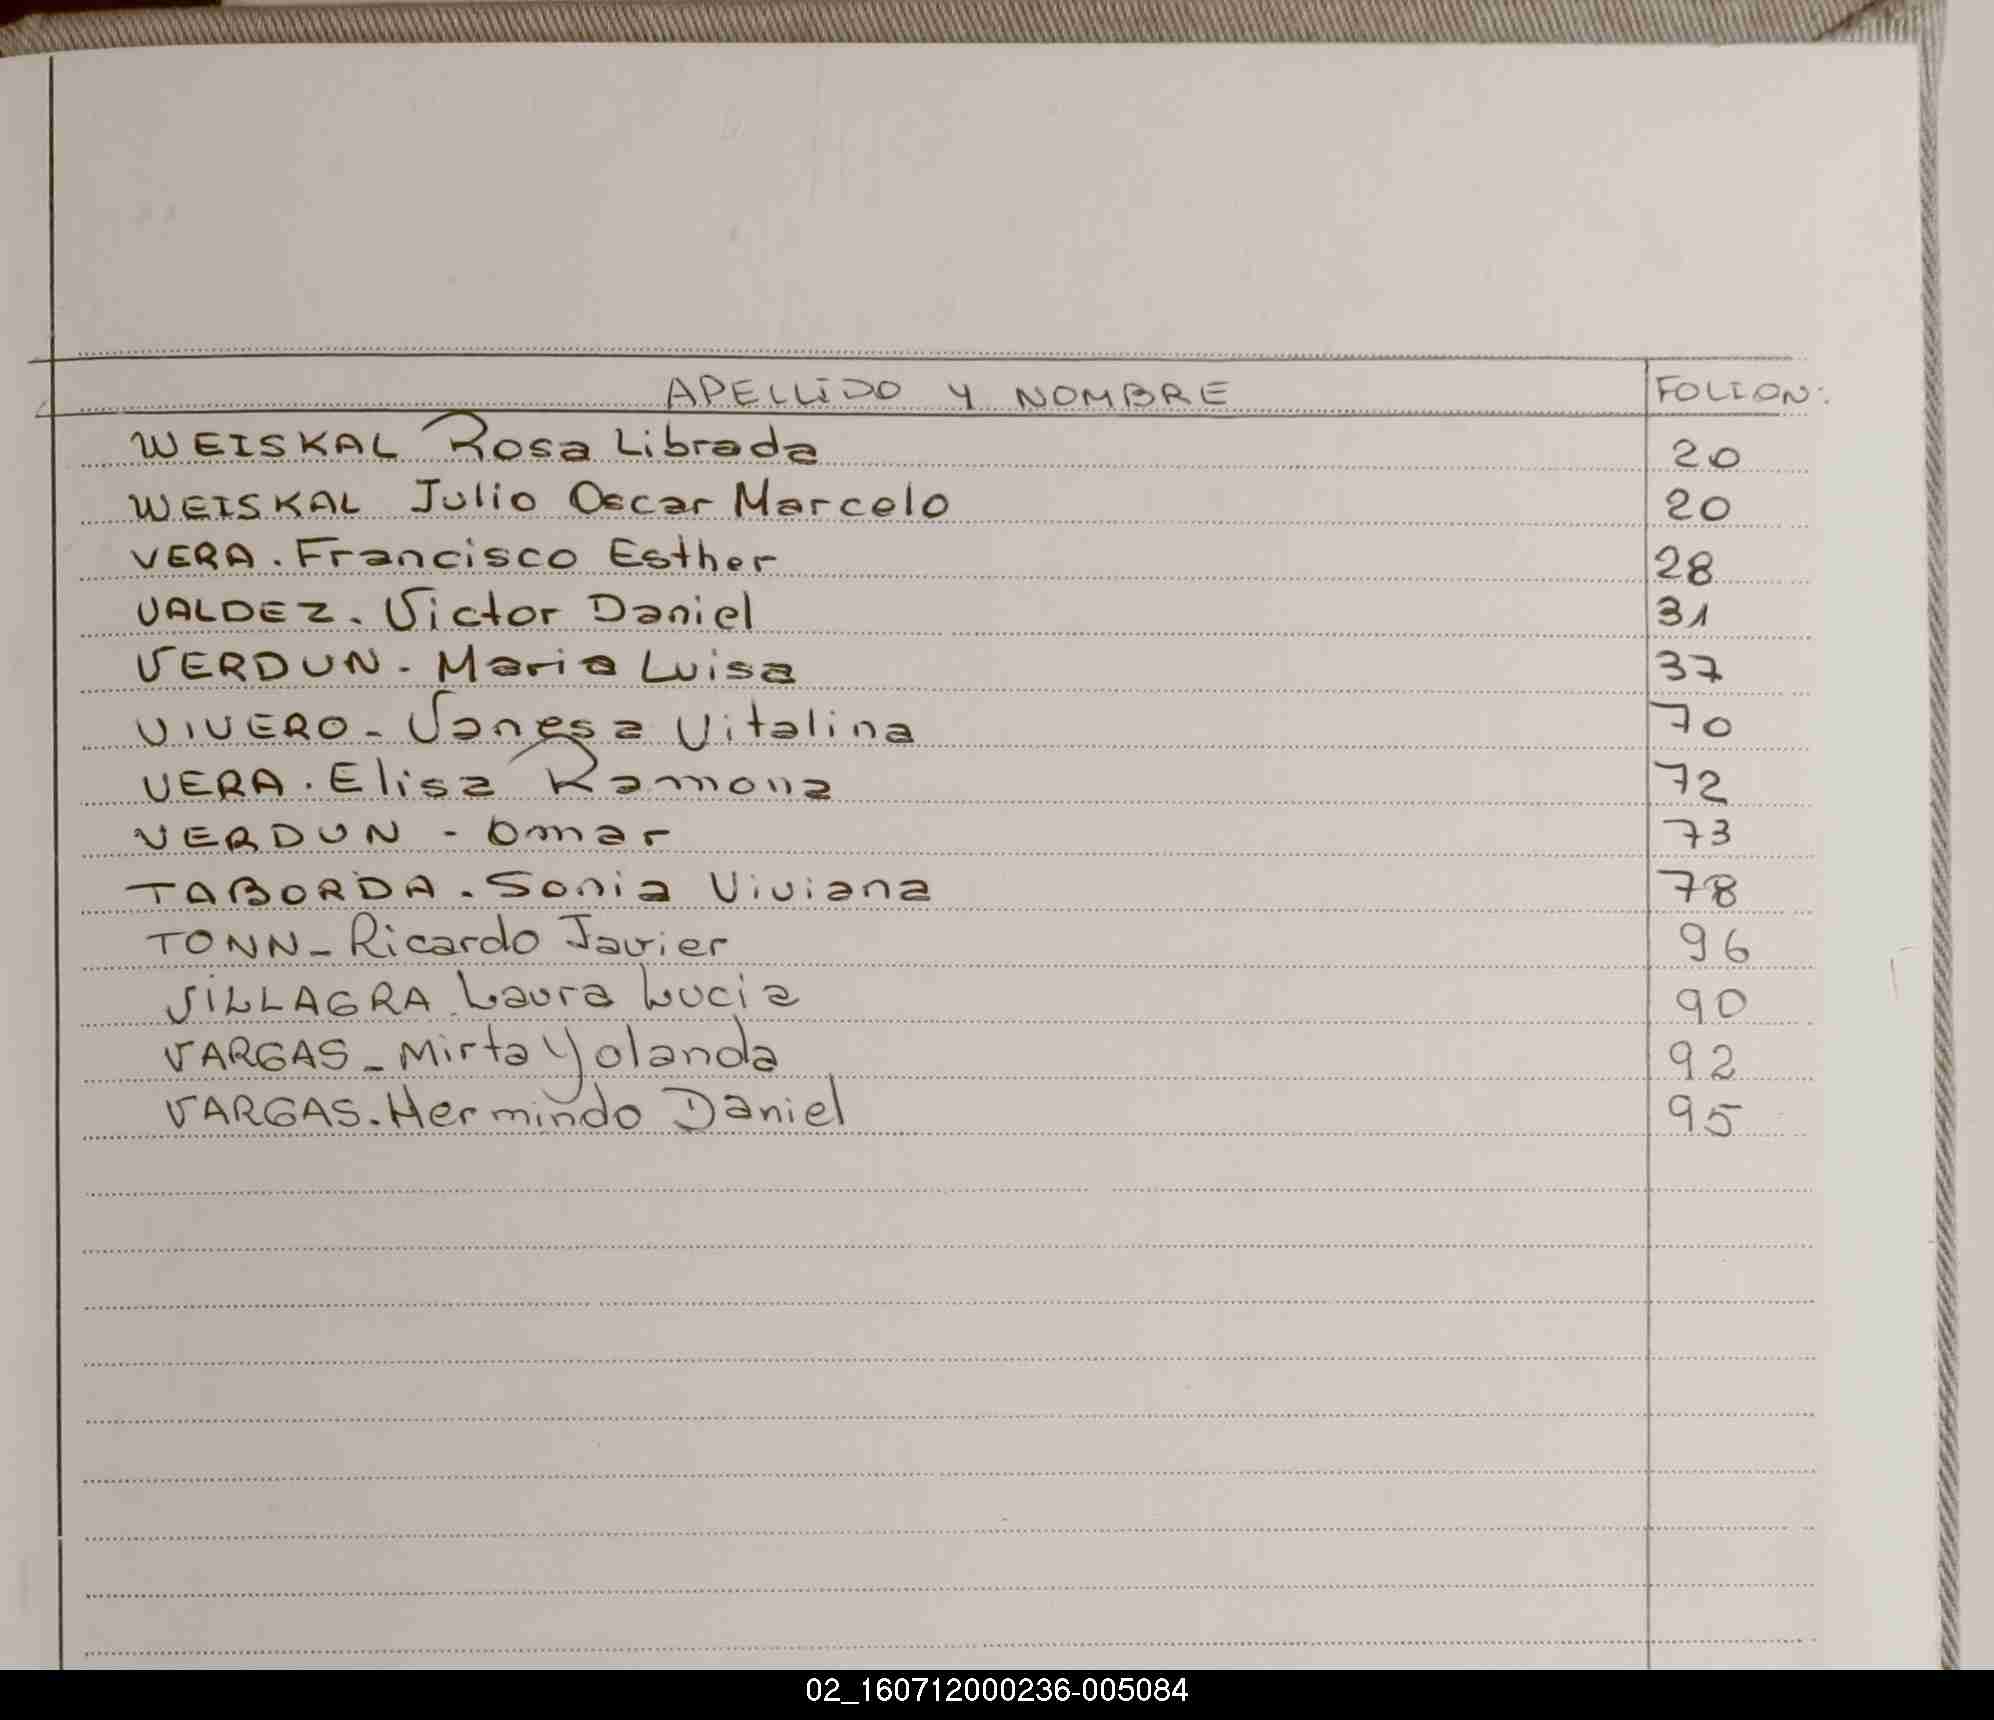 APELLIDO Y NOMBRE FOLION:
WEISKAL Rosa Librada 20
WEISKAL Julio Oscar Marcelo 20
VERA. Francisco Esther 28
VALDEZ. Victor Daniel 31
VERDUN - Maria Luisa 37
VIVERO - Vanesa Vitalina 70
VERA. Elisa Ramona 72
VERDUN - Omar 73
TABORDA. Sonia Viviana 78
TONN - Ricardo Javier 96
VILLAGRA. Laura Lucia 90
VARGAS - Mirta Yolanda 92
VARGAS. Hermindo Daniel 95
02_160712000236-005084